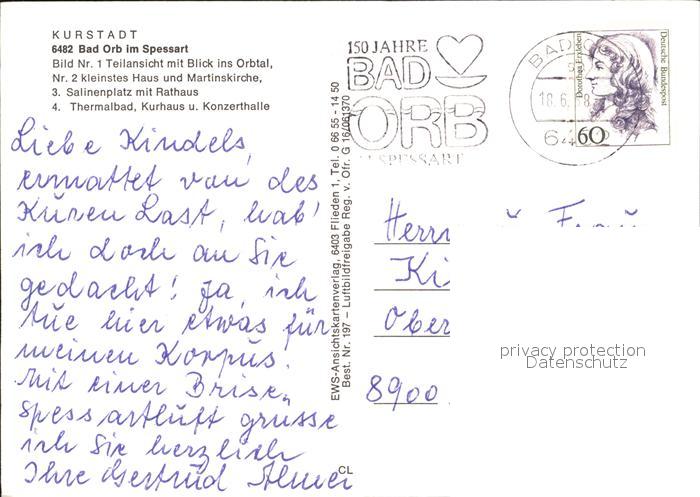 KURSTADT
6482 Bad Orb im Spessart
Bild Nr. 1 Teilansicht mit Blick ins Orbtal,
Nr. 2 kleinstes Haus und Martinskirche,
3. Salinenplatz mit Rathaus
4. Thermalbad, Kurhaus u. Konzerthalle
Liebe Kindels,
ermattet von des
Kuren Last, hab'
ich doch an Sie
gedacht! Ja, ich
tue hier etwas für
meinen Korpus.
Mit einer Brise
Spessartluft grüsse
ich Sie herzlich
Ihre Gertrud
EWS-Ansichtskartenverlag, 6403 Flieden 1, Tel. 0 66 55 - 14 50
Best. Nr. 197 – Luftbildfreigabe Reg. v. Ofr. G 16/061370
CL
150 JAHRE
BAD
ORB
IM SPESSART
BAD
18.6.
Dorothea Erxleben
Deutsche Bundespost
60
Herrn u. Frau
Ki
Ober
8900
privacy protection
Datenschutz